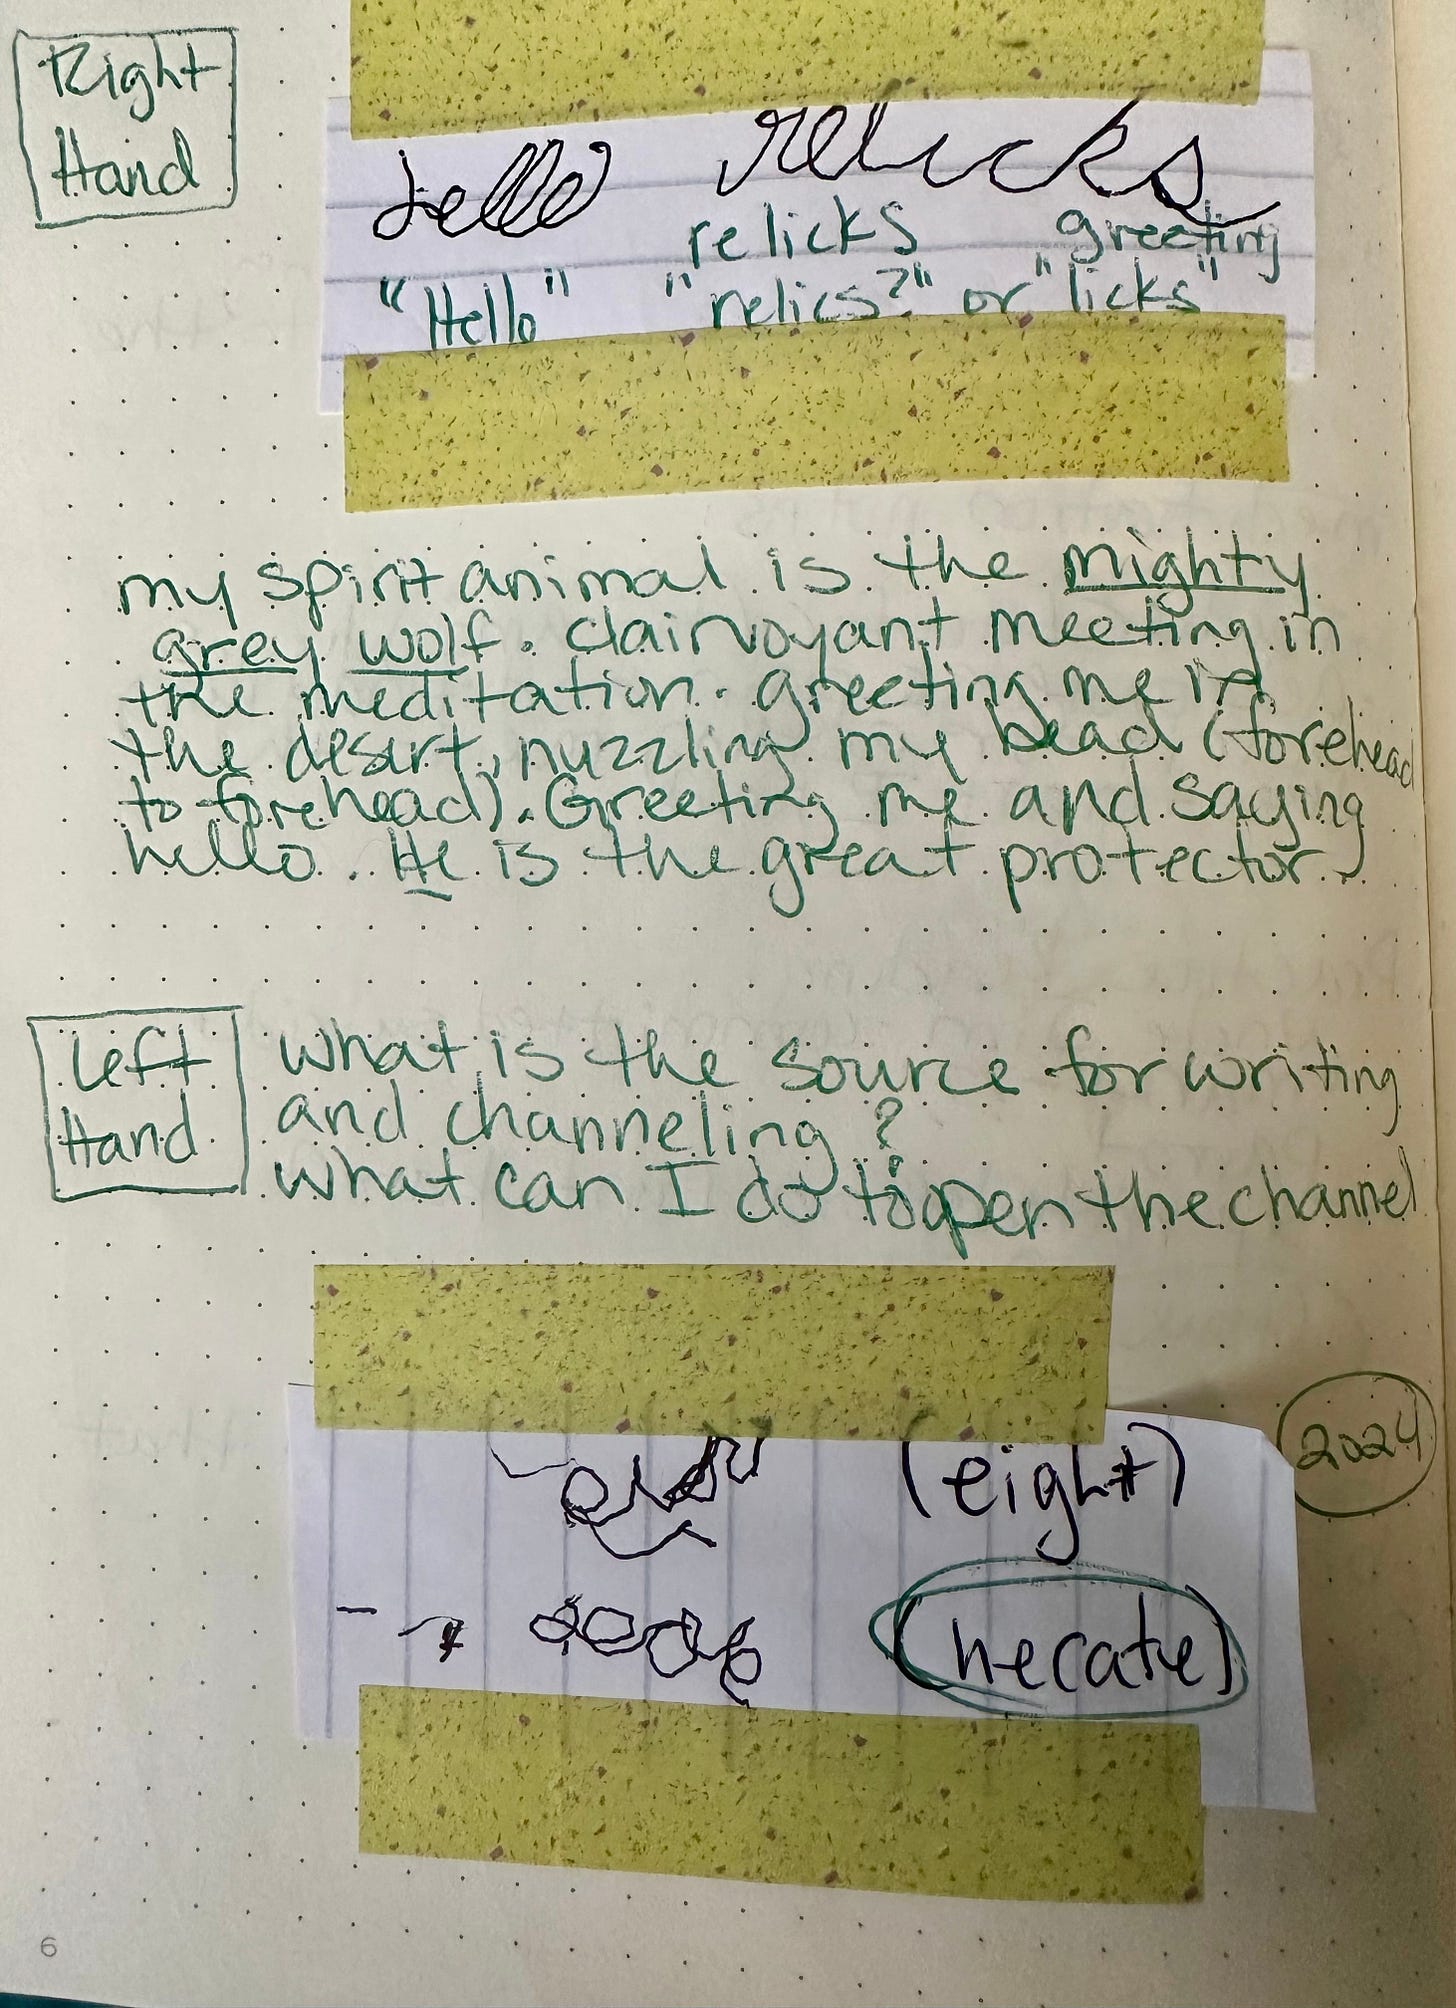 Right
Hand
hello relicks
relicks greeting
"Hello" "relics?" or "licks"
my spirit animal is the mighty
grey wolf. Clairvoyant meeting in
the meditation. Greeting me in
the desert, nuzzling my head (forehead
to forehead). Greeting me and saying
hello. He is the great protector.
Left
Hand
What is the source for writing
and channeling?
What can I do to open the channel
(eight)
2024
(hecate)
6